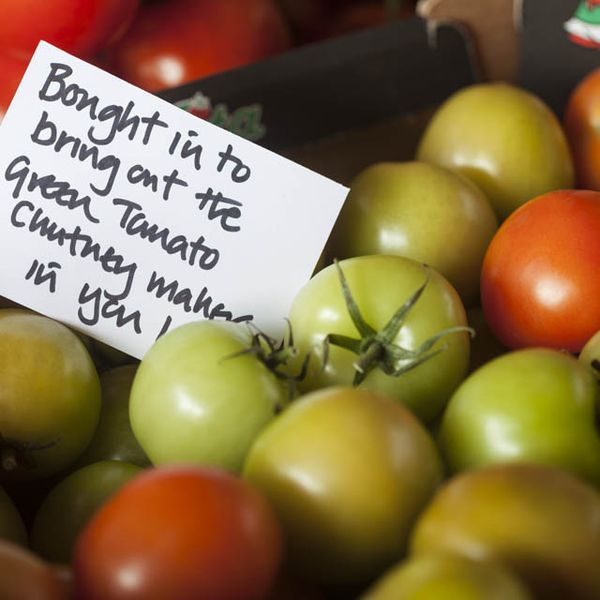 Bought in to
bring out the
Green Tomato
Chutney maker
in you!